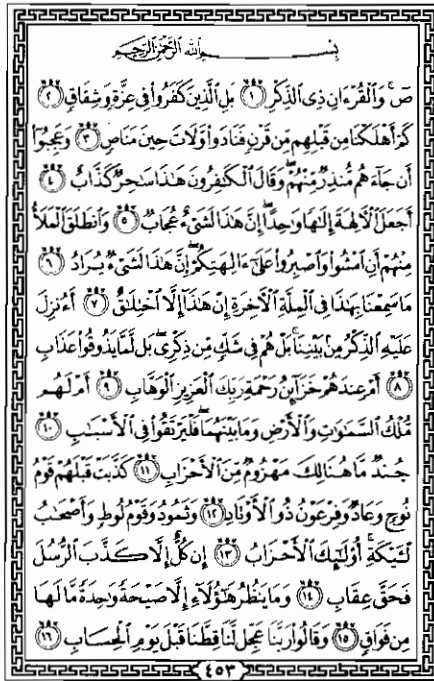 بِسْمِ ٱللَّهِ ٱلرَّحْمَٰنِ ٱلرَّحِيمِ
صٓ ۚ وَٱلْقُرْءَانِ ذِى ٱلذِّكْرِ ١ بَلِ ٱلَّذِينَ كَفَرُوا۟ فِى عِزَّةٍ وَشِقَاقٍ ٢
كَمْ أَهْلَكْنَا مِن قَبْلِهِم مِّن قَرْنٍ فَنَادَوا۟ وَّلَاتَ حِينَ مَنَاصٍ ٣ وَعَجِبُوٓا۟
أَن جَآءَهُم مُّنذِرٌ مِّنْهُمْ ۖ وَقَالَ ٱلْكَٰفِرُونَ هَٰذَا سَٰحِرٌ كَذَّابٌ ٤
أَجَعَلَ ٱلْءَالِهَةَ إِلَٰهًا وَٰحِدًا ۖ إِنَّ هَٰذَا لَشَىْءٌ عُجَابٌ ٥ وَٱنطَلَقَ ٱلْمَلَأُ
مِنْهُمْ أَنِ ٱمْشُوا۟ وَٱصْبِرُوا۟ عَلَىٰٓ ءَالِهَتِكُمْ ۖ إِنَّ هَٰذَا لَشَىْءٌ يُرَادُ ٦
مَا سَمِعْنَا بِهَٰذَا فِى ٱلْمِلَّةِ ٱلْءَاخِرَةِ إِنْ هَٰذَآ إِلَّا ٱخْتِلَٰقٌ ٧ أَءُنزِلَ
عَلَيْهِ ٱلذِّكْرُ مِنۢ بَيْنِنَا ۚ بَلْ هُمْ فِى شَكٍّ مِّن ذِكْرِى ۖ بَل لَّمَّا يَذُوقُوا۟ عَذَابِ
٨ أَمْ عِندَهُمْ خَزَآئِنُ رَحْمَةِ رَبِّكَ ٱلْعَزِيزِ ٱلْوَهَّابِ ٩ أَمْ لَهُم
مُّلْكُ ٱلسَّمَٰوَٰتِ وَٱلْأَرْضِ وَمَا بَيْنَهُمَا ۖ فَلْيَرْتَقُوا۟ فِى ٱلْأَسْبَٰبِ ١٠
جُندٌ مَّا هُنَالِكَ مَهْزُومٌ مِّنَ ٱلْأَحْزَابِ ١١ كَذَّبَتْ قَبْلَهُمْ قَوْمُ
نُوحٍ وَعَادٌ وَفِرْعَوْنُ ذُو ٱلْأَوْتَادِ ١٢ وَثَمُودُ وَقَوْمُ لُوطٍ وَأَصْحَٰبُ
لْـَٔيْكَةِ ۚ أُو۟لَٰٓئِكَ ٱلْأَحْزَابُ ١٣ إِن كُلٌّ إِلَّا كَذَّبَ ٱلرُّسُلَ
فَحَقَّ عِقَابِ ١٤ وَمَا يَنظُرُ هَٰٓؤُلَآءِ إِلَّا صَيْحَةً وَٰحِدَةً مَّا لَهَا
مِن فَوَاقٍ ١٥ وَقَالُوا۟ رَبَّنَا عَجِّل لَّنَا قِطَّنَا قَبْلَ يَوْمِ ٱلْحِسَابِ ١٦
٤٥٣